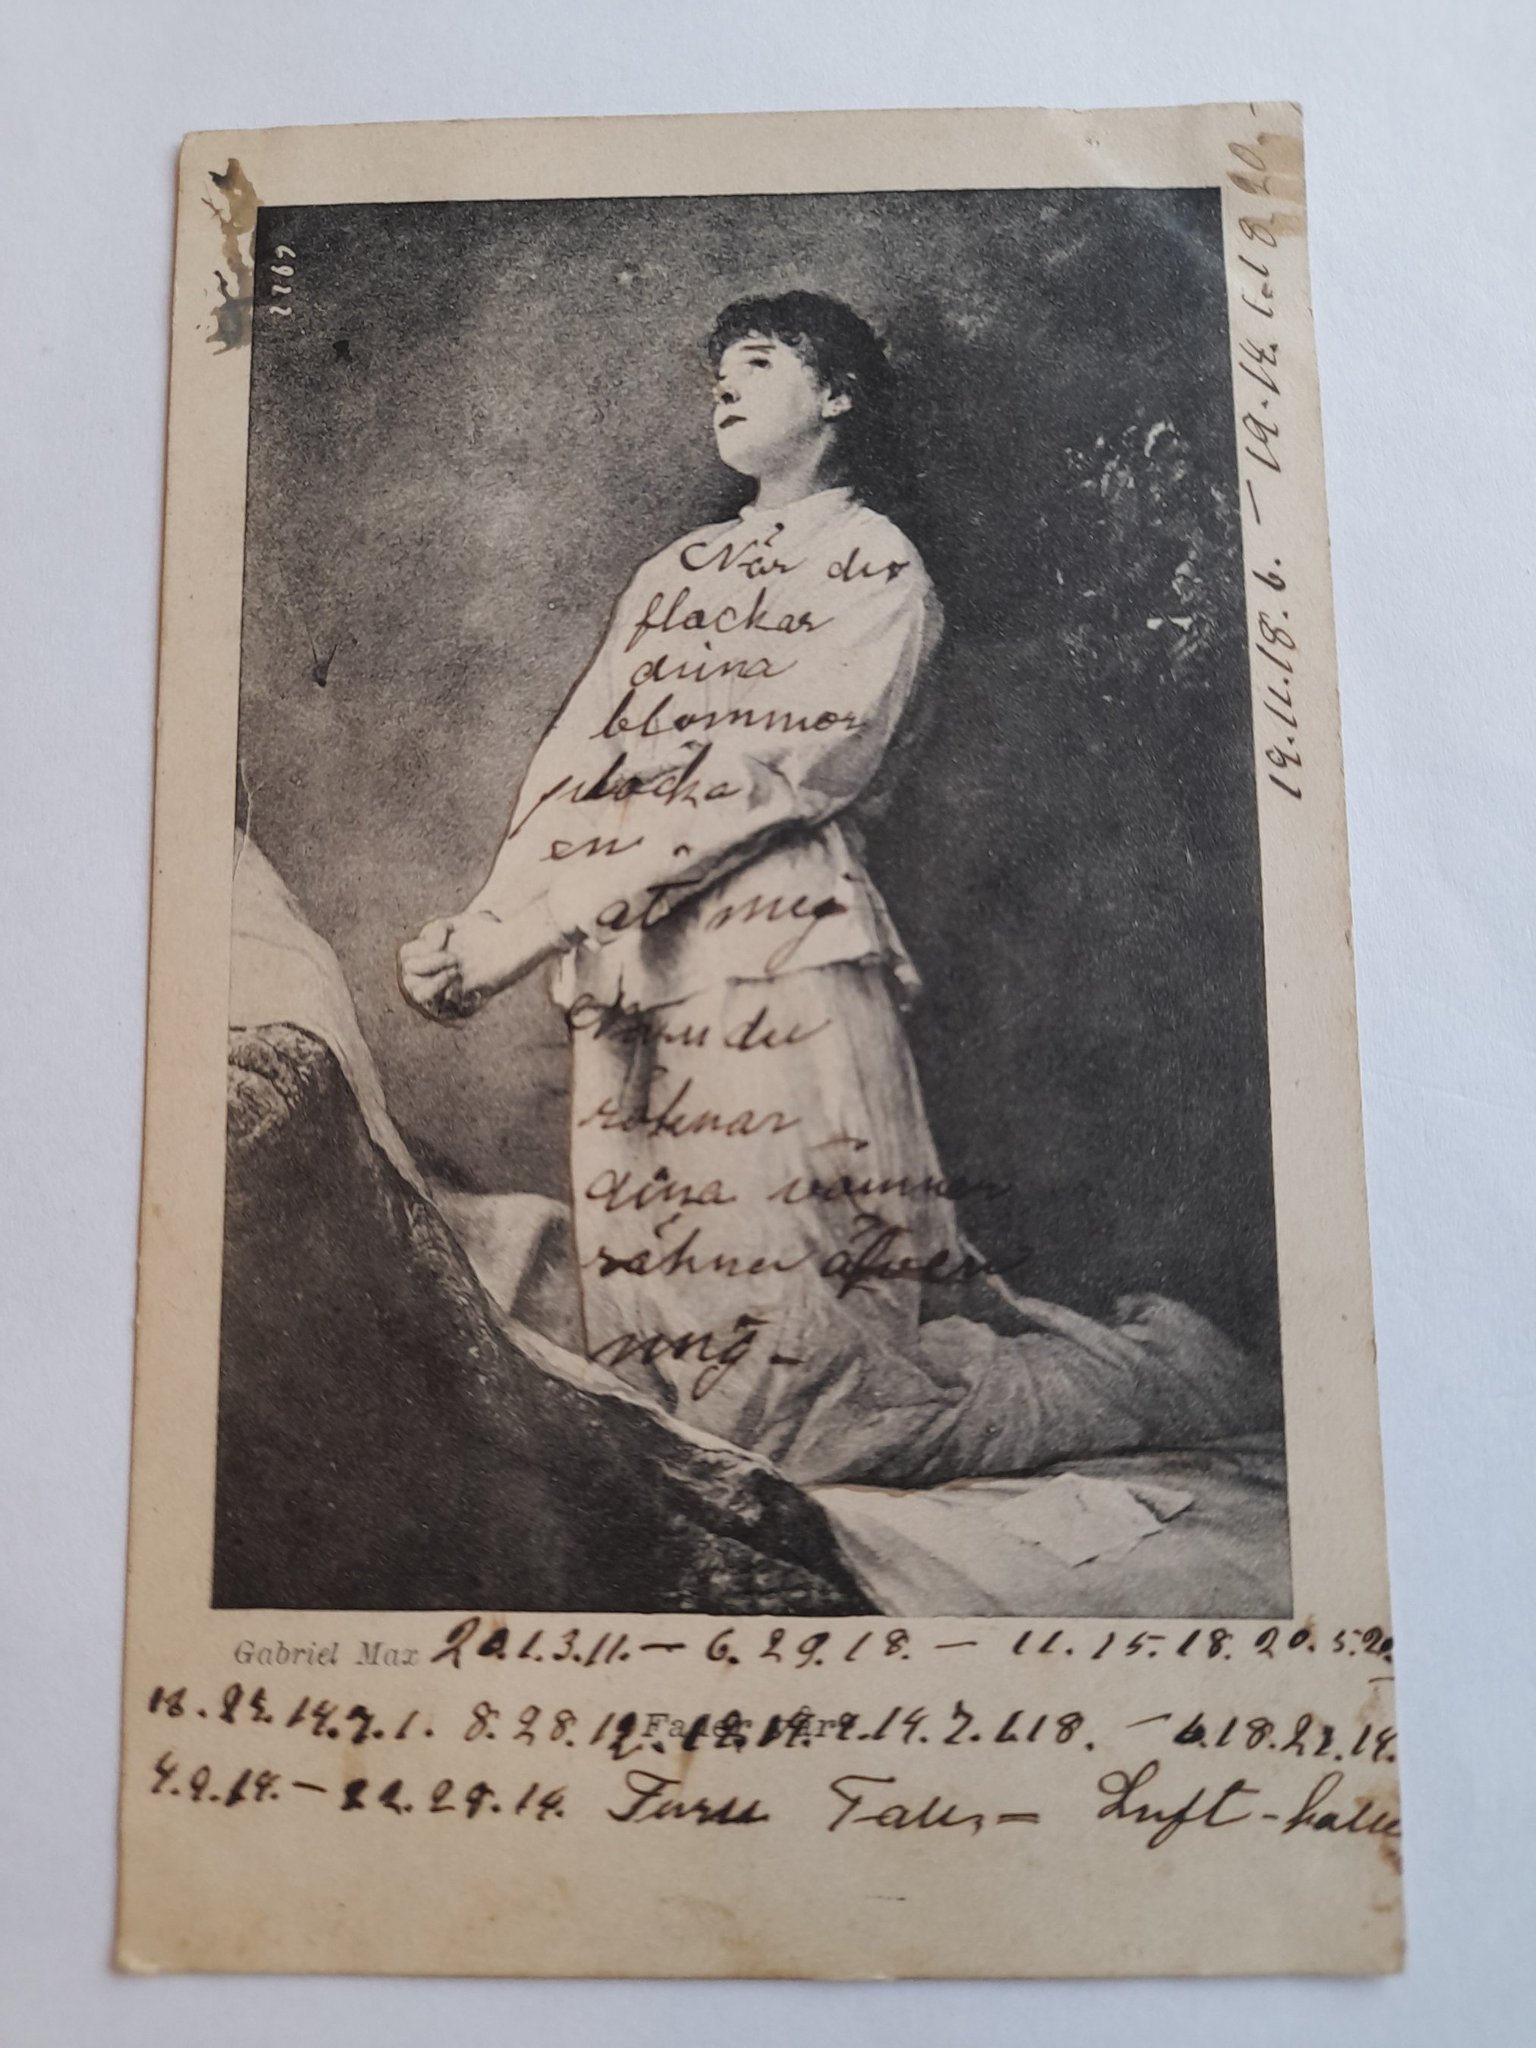 2269
När du
flackar
dina
blommor
plocka
en
at mig
När du
räknar
dina vänner
räkna äfven
mig-
19.11.18.6. - 19.14.1.18.20.-
Gabriel Max 20.1.3.11. - 6.29.18. - 11.15.18.20.5.20.
8.28.12. 14.7.1.18. - 6.18.27.14.
4.9.14. - 22.28.14. Furu Luft-